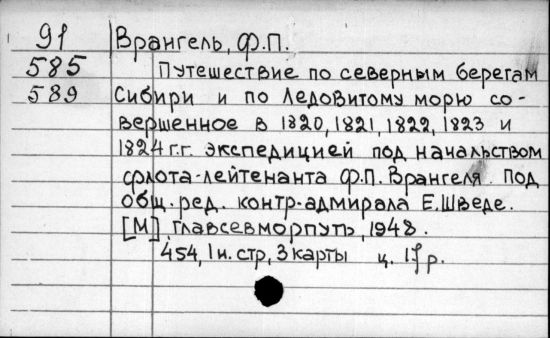 91 Врангель, Ф.П.
585 Путешествие по северным берегам
589 Сибири и по Ледовитому морю со-
вершенное в 1820, 1821, 1822, 1823 и
1824 г.г. экспедицией под начальством
флота-лейтенанта Ф.П. Врангеля. Под
общ. ред. контр-адмирала Е. Шведе.
[М], Главсевморпуть, 1948.
454, 1 н. стр, 3 карты ц. р.